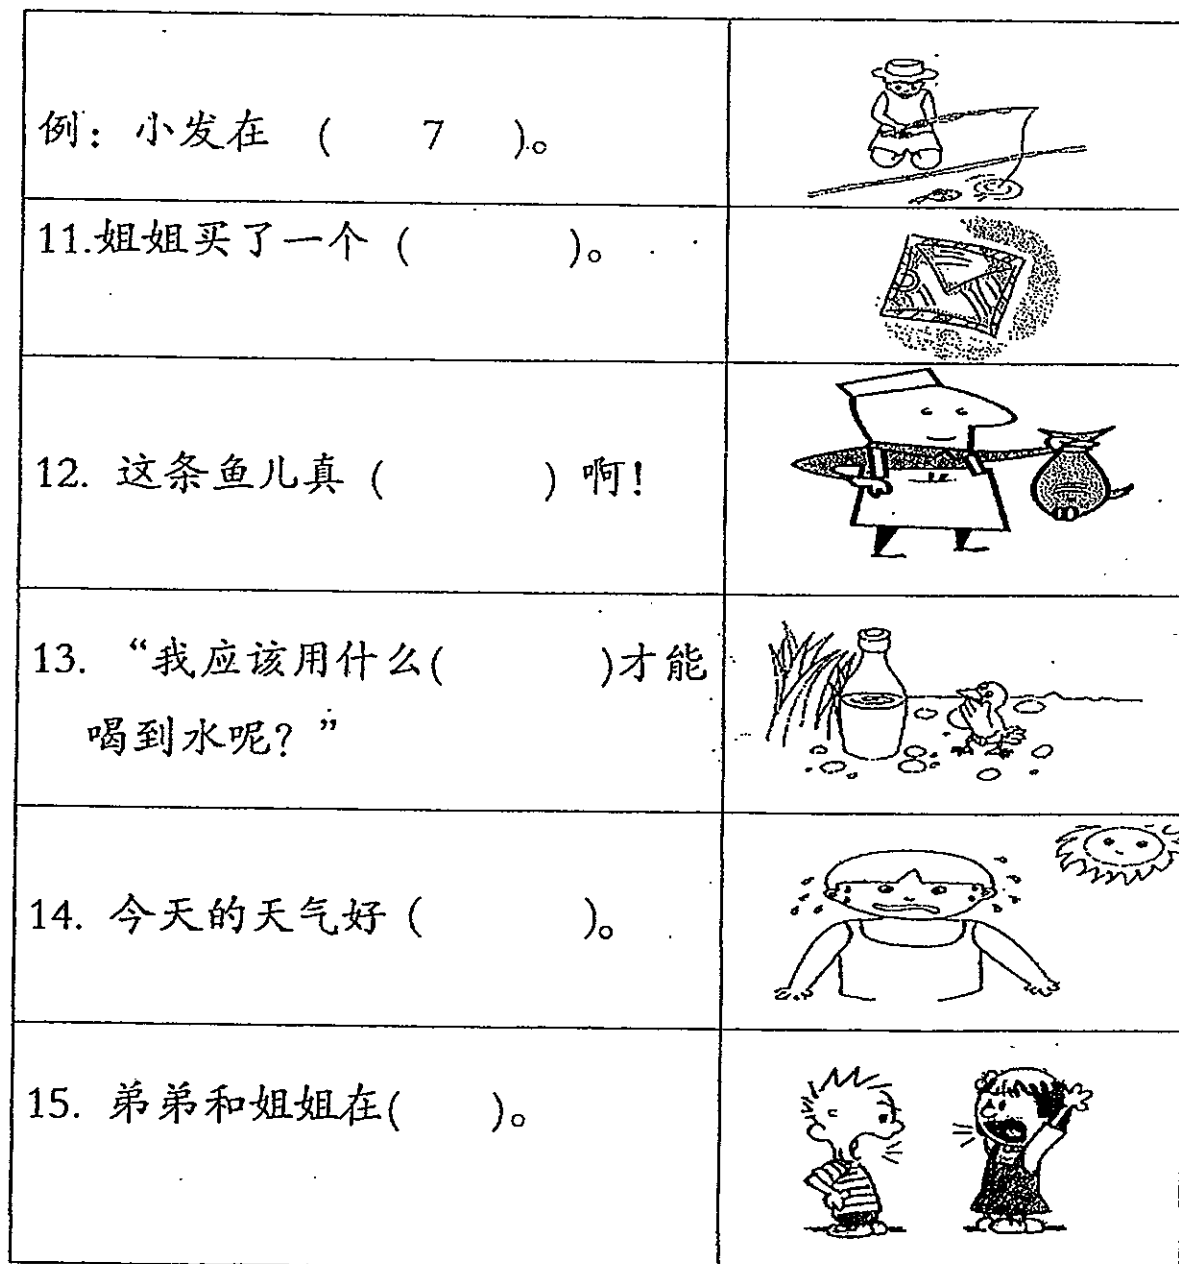 例：小发在 （ 7 ）。
11.姐姐买了一个（ ）。
12. 这条鱼儿真（ ）啊！
13. “我应该用什么( )才能
喝到水呢？”
14. 今天的天气好（ ）。
15. 弟弟和姐姐在( )。